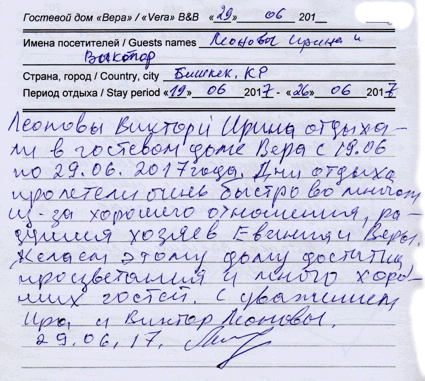 Гостевой дом «Вера» / «Vera» B&B «29» 06 201
Имена посетителей / Guests names Леоновы Ирина и
Виктор
Страна, город / Country, city Бишкек, КР
Период отдыха / Stay period «19» 06 2017 - «26» 06 2017
Леоновы Виктор и Ирина отдыха-
ли в гостевом доме Вера с 19.06
по 29.06.2017 года. Дни отдыха
пролетели очень быстро во многом
из-за хорошего отношения, ра-
душия хозяев Евгения и Веры.
Желаем этому дому достатка
процветания и много хоро-
ших гостей. С уважением
Ира и Виктор Леоновы.
29.06.17.